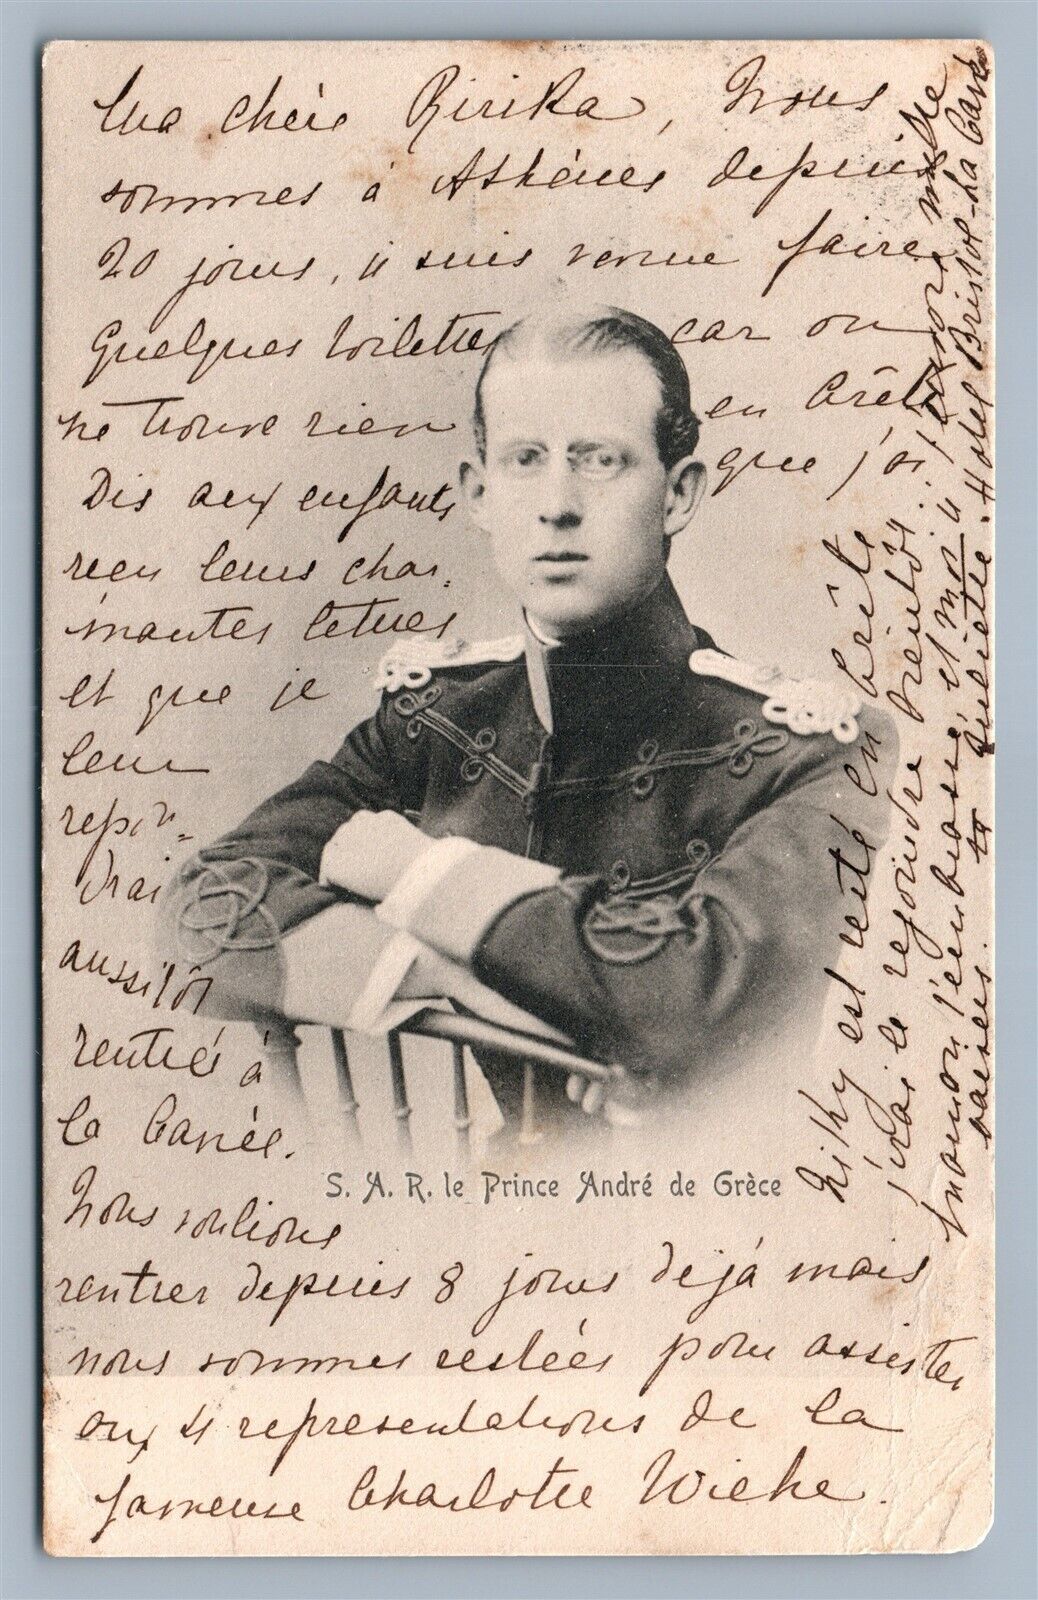 Ma chère Ririka, Nous
sommes à Athènes depuis
20 jours, je suis venue faire
quelques toilettes car on
ne trouve rien en Crète
Dis aux enfants que j'ai
reçu leurs char-
mantes lettres
et que je
leur
répon-
drai
aussitôt
rentrés à
la Canée.
Nous voulions
rentrer depuis 8 jours déjà mais
nous sommes restées pour assister
aux 4 représentations de la
fameuse Charlotte Wiehe.
S. A. R. le Prince André de Grèce
Niky est resté en Crète
j'irai le rejoindre bientôt.
Maman t'embrasse et moi je t'envoie mille
baisers. ta Juliette. Hotel Bristol - La Canée